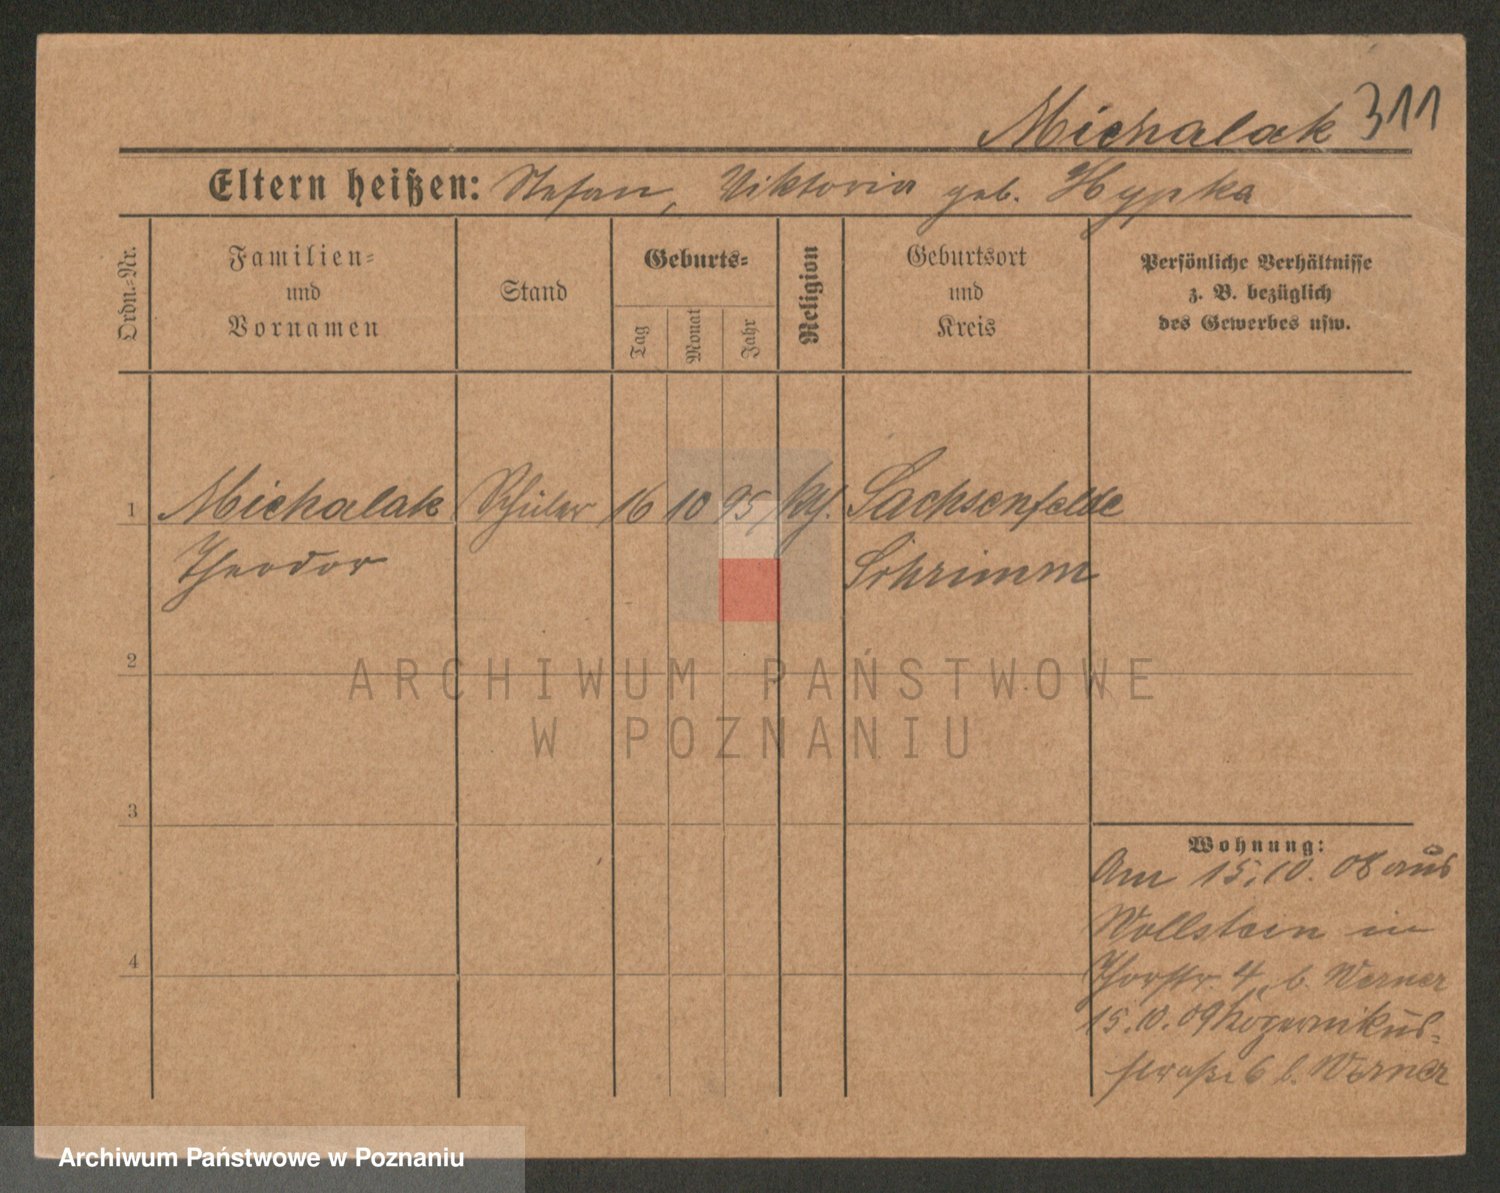 Michalak 311
Eltern heißen: Stefan, Viktoria geb. Hypka
Ordn.-Nr.
Familien-
und
Vornamen
Stand
Geburts-
Tag
Monat
Jahr
Religion
Geburtsort
und
Kreis
Persönliche Verhältnisse
z. B. bezüglich
des Gewerbes usw.
1 Michalak Schüler 16 10 95 kth. Sachsenfelde
Theodor Schrimm
2
ARCHIWUM PAŃSTWOWE
W POZNANIU
3
Wohnung:
Am 15.10.08 aus
Wollstein in
4
Thorstr. 4, b. Werner
15.10.09 Kopernikus-
straße 6 b. Werner
Archiwum Państwowe w Poznaniu